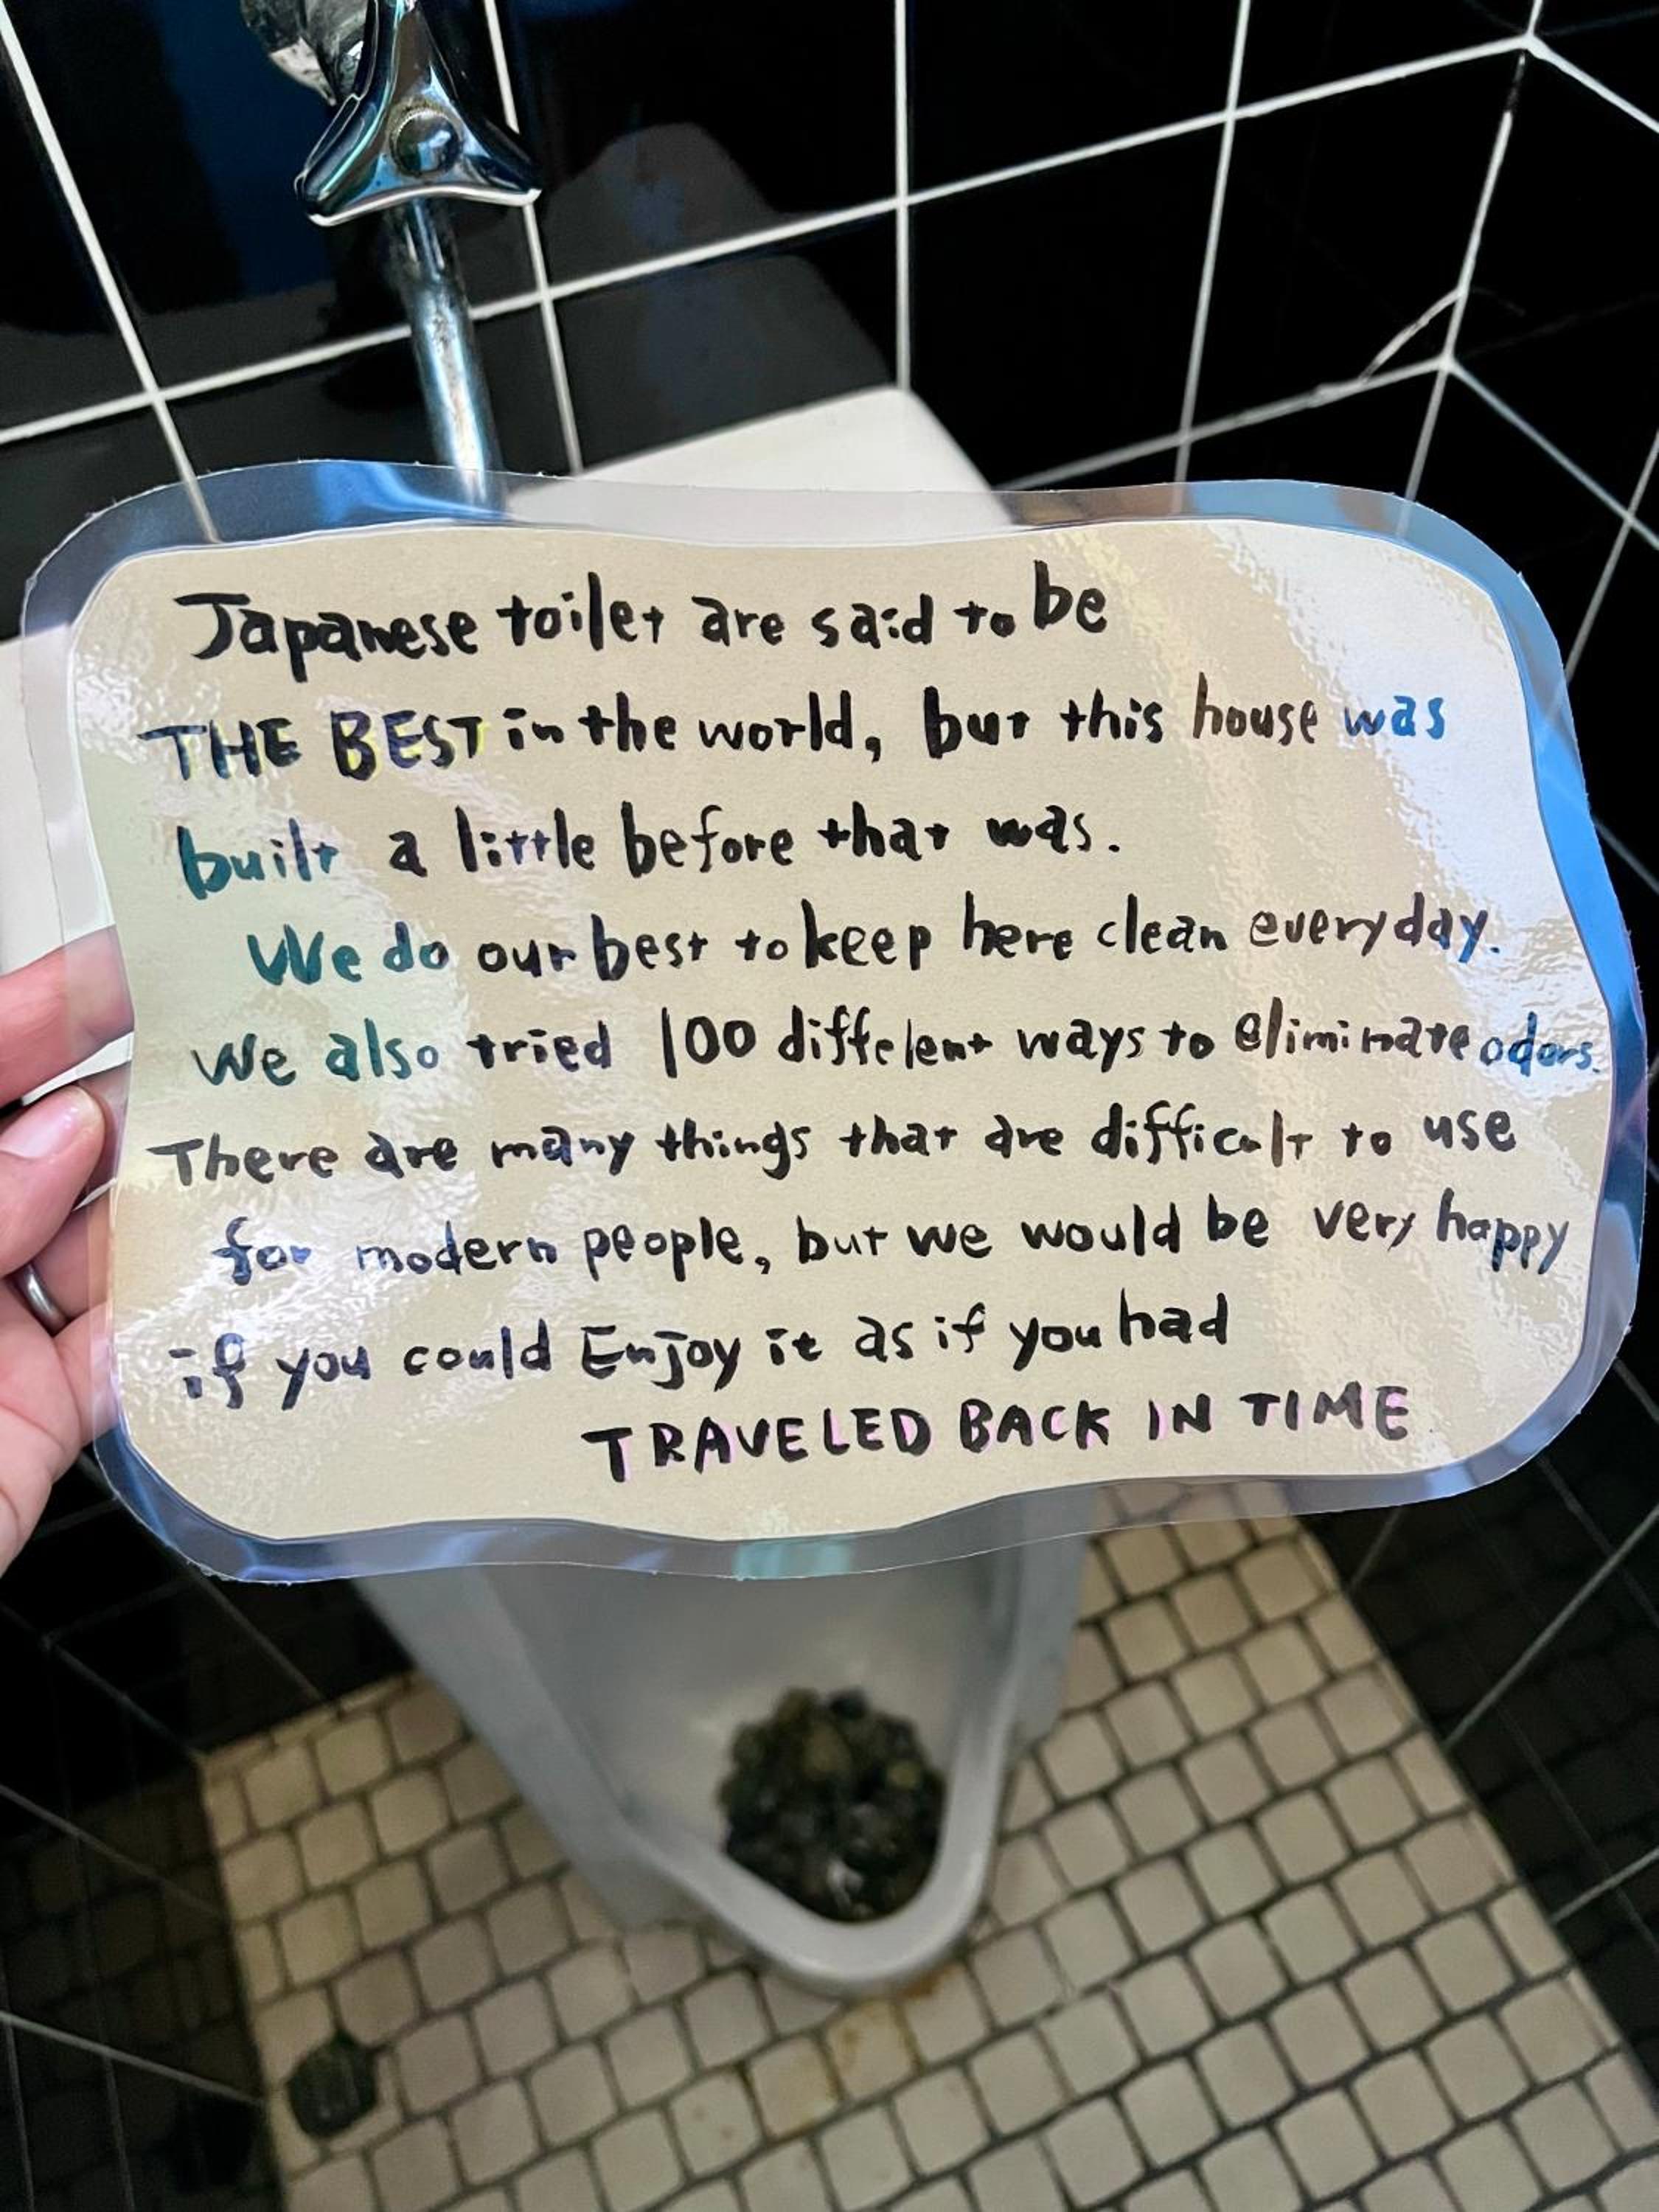 Japanese toilet are said to be
THE BEST in the world, but this house was
built a little before that was.
We do our best to keep here clean everyday.
We also tried 100 diffelent ways to eliminate odors.
There are many things that are difficult to use
for modern people, but we would be very happy
if you could Enjoy it as if you had
TRAVELED BACK IN TIME